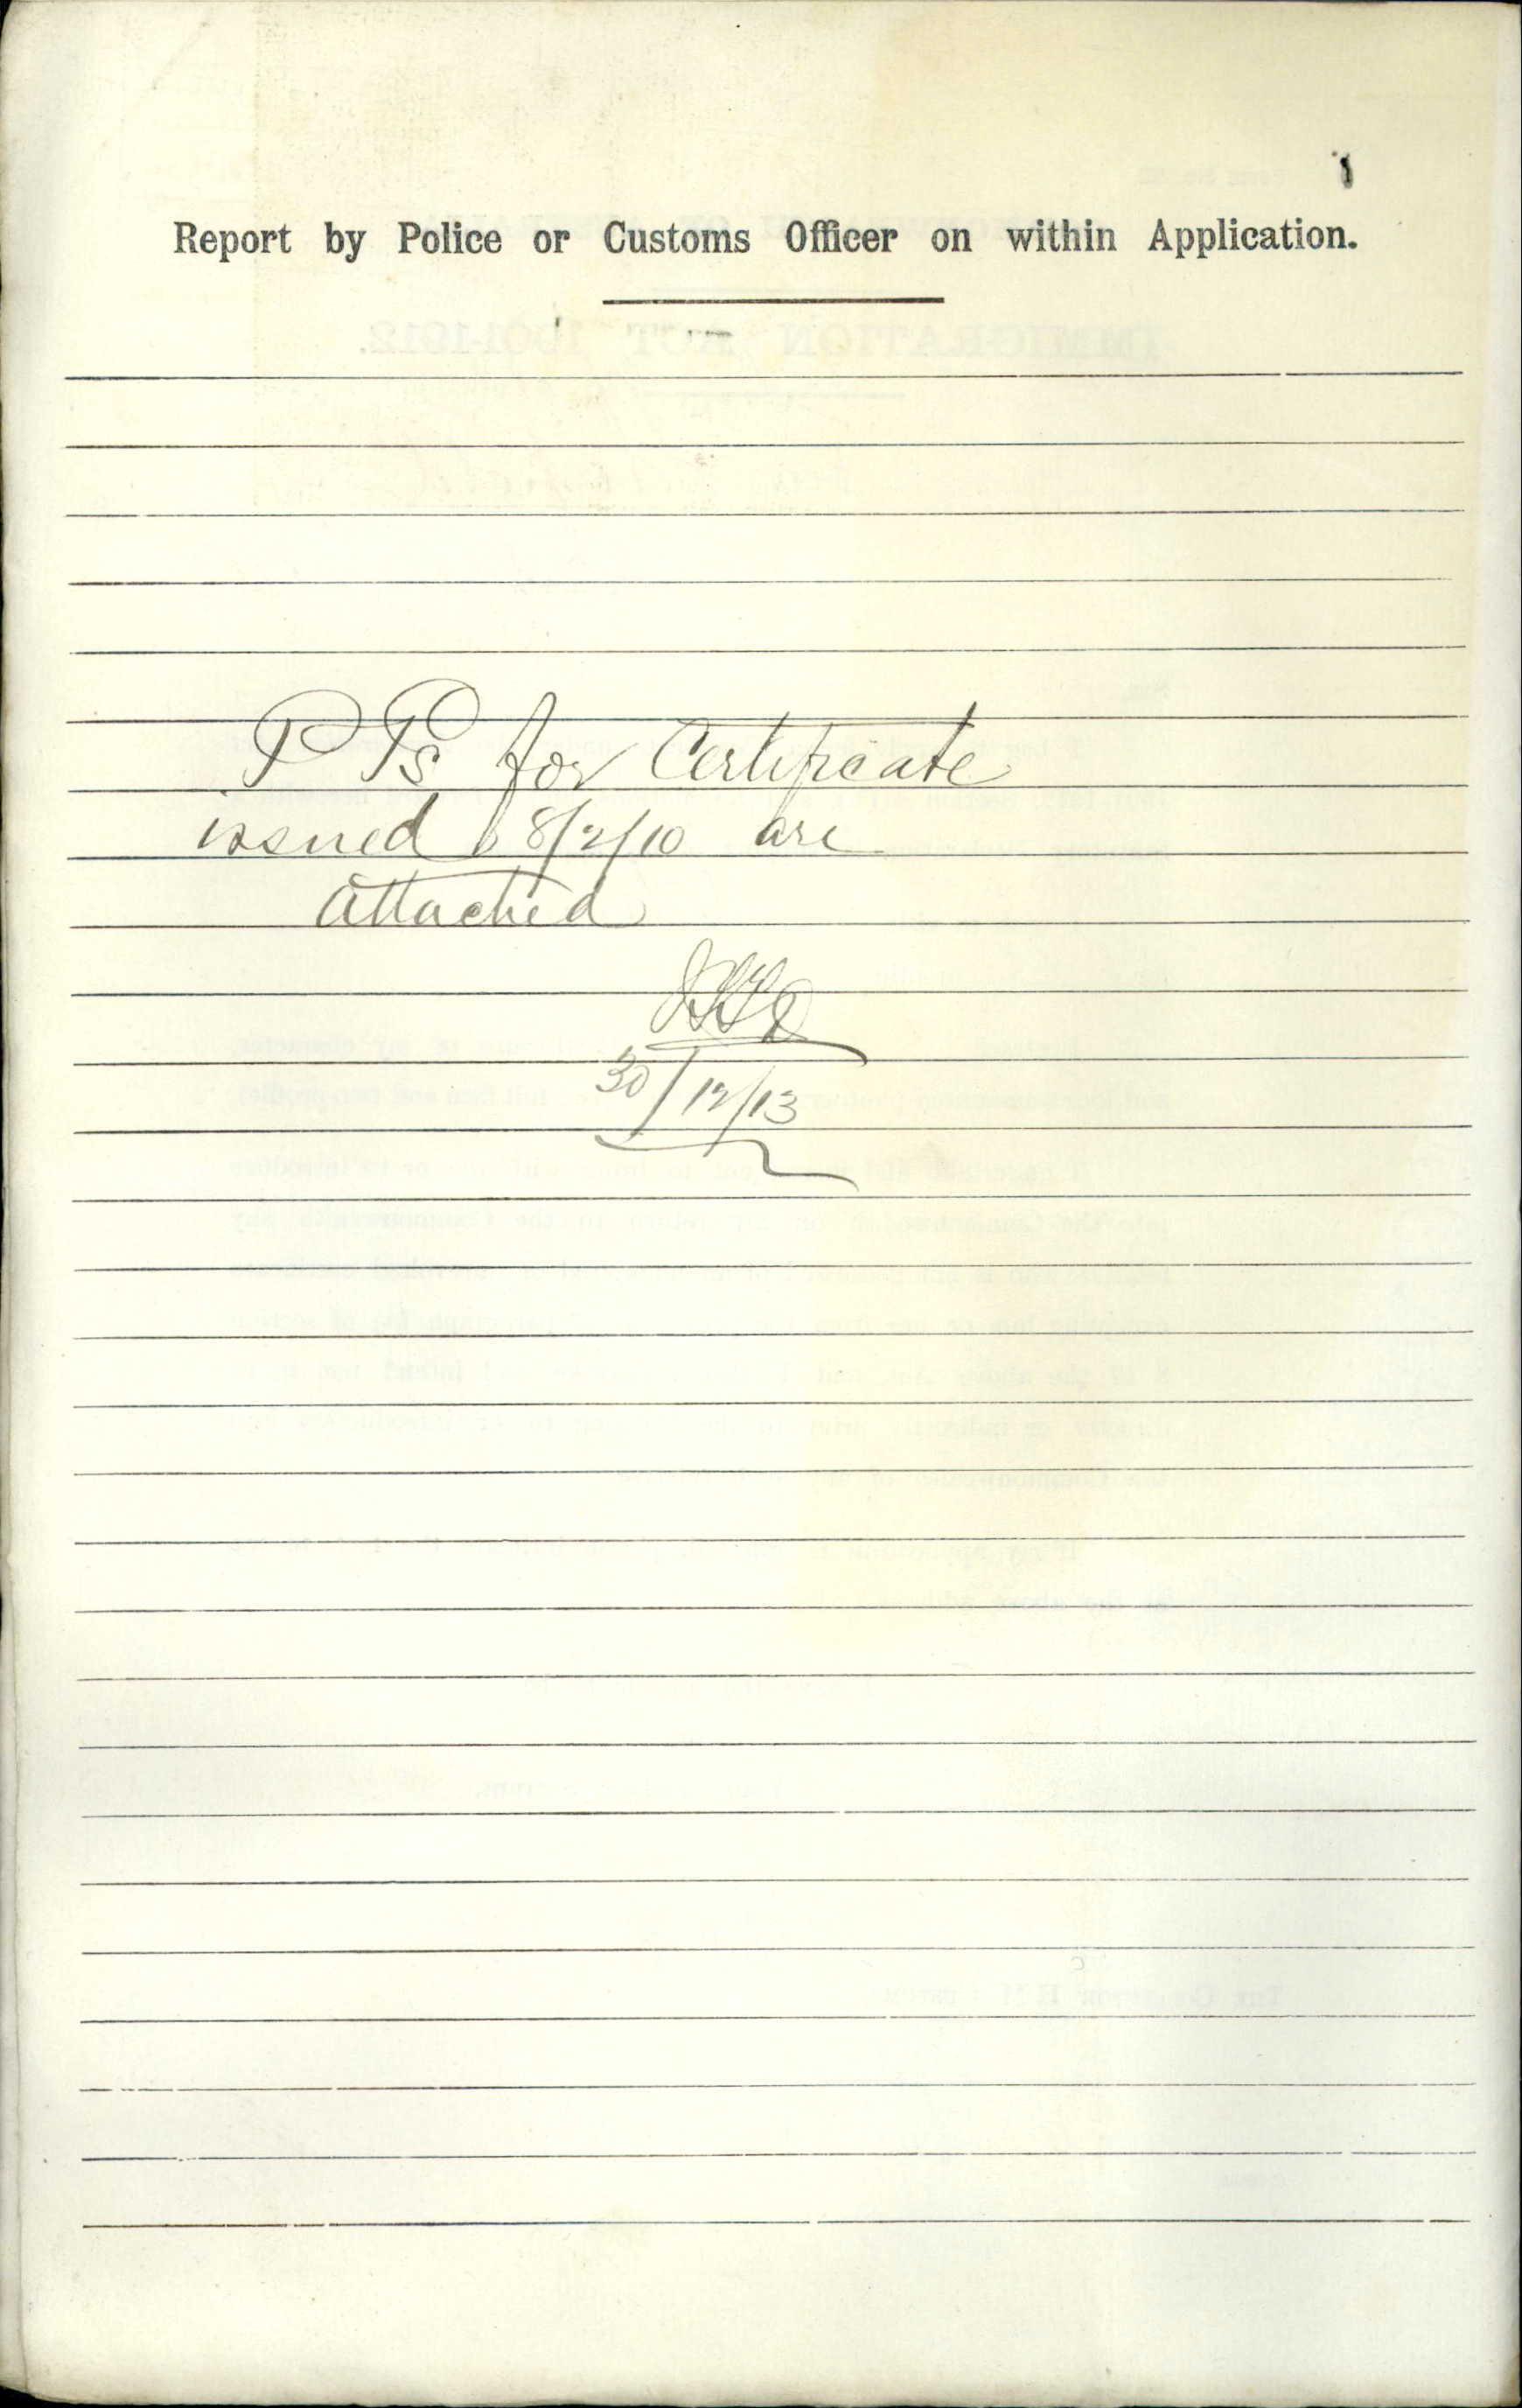 Report by Police or Customs Officer on within Application.
PPs for Certificate
issued 8/2/10 are
attached
30/12/13